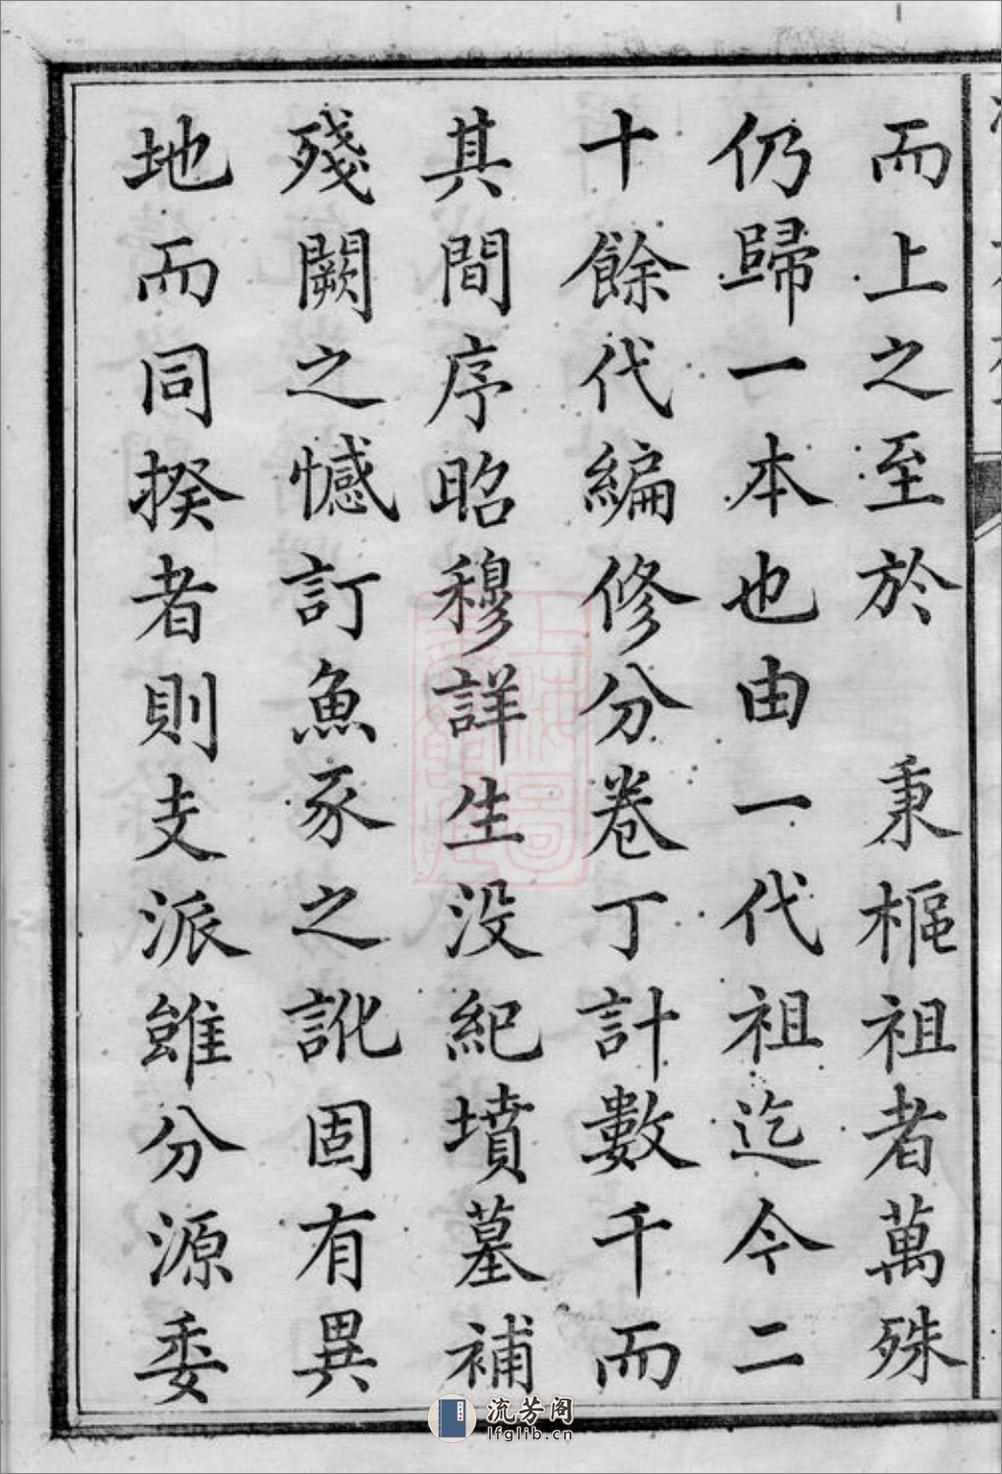 而上之至於 秉樞祖者萬殊
仍歸一本也由一代祖迄今二
十餘代編修分卷丁計數千而
其間序昭穆詳生没紀墳墓補
殘闕之憾訂魚豕之訛固有異
地而同揆者則支派雖分源委
流芳阁
lfglib.cn